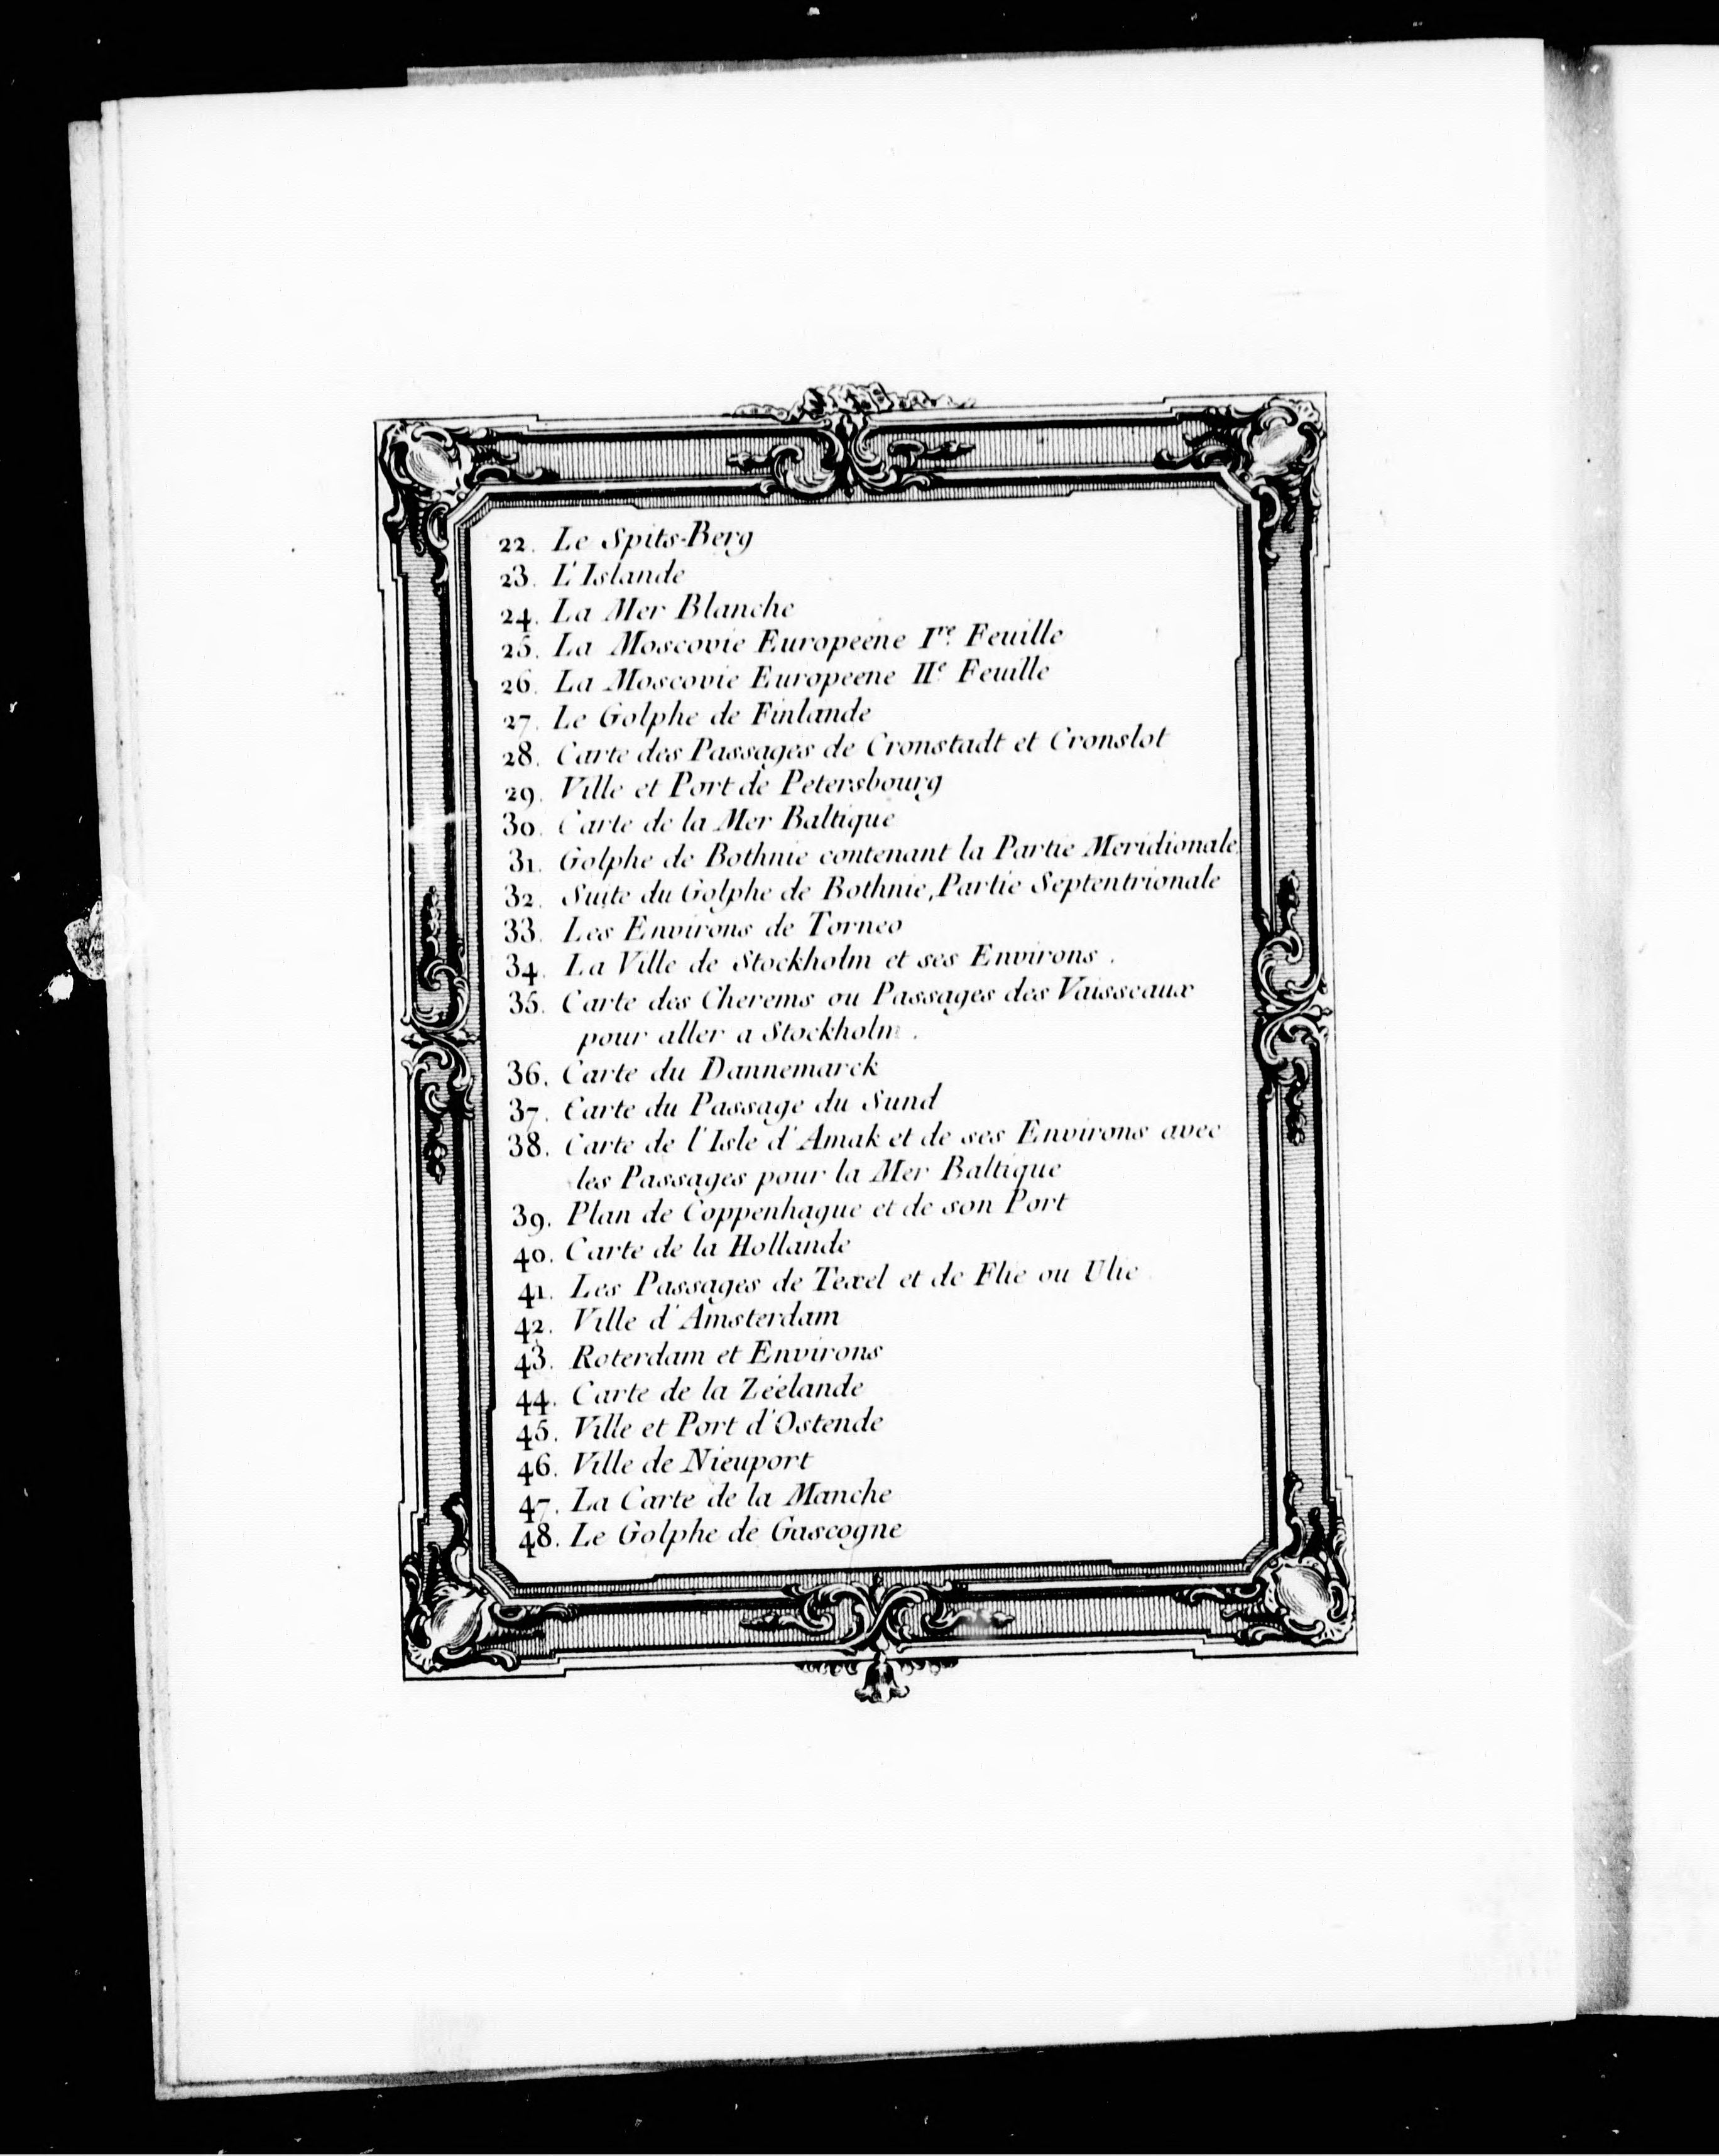 22. Le Spits-Berg
23. L'Islande
24. La Mer Blanche
25. La Moscovie Europeéne I.re Feuille
26. La Moscovie Europeene II.e Feuille
27. Le Golphe de Finlande
28. Carte des Passages de Cronstadt et Cronslot
29. Ville et Port de Petersbourg
30. Carte de la Mer Baltique
31. Golphe de Bothnie contenant la Partie Meridionale.
32. Suite du Golphe de Bothnie, Partie Septentrionale
33. Les Environs de Torneo
34. La Ville de Stockholm et ses Environs.
35. Carte des Cherems ou Passages des Vaisseaux
pour aller a Stockholm.
36. Carte du Dannemarck
37. Carte du Passage du Sund
38. Carte de l'Isle d'Amak et de ses Environs avec
les Passages pour la Mer Baltique
39. Plan de Coppenhague et de son Port
40. Carte de la Hollande
41. Les Passages de Texel et de Flie ou Ulie
42. Ville d'Amsterdam
43. Roterdam et Environs
44. Carte de la Zéelande
45. Ville et Port d'Ostende
46. Ville de Nieuport
47. La Carte de la Manche
48. Le Golphe de Gascogne